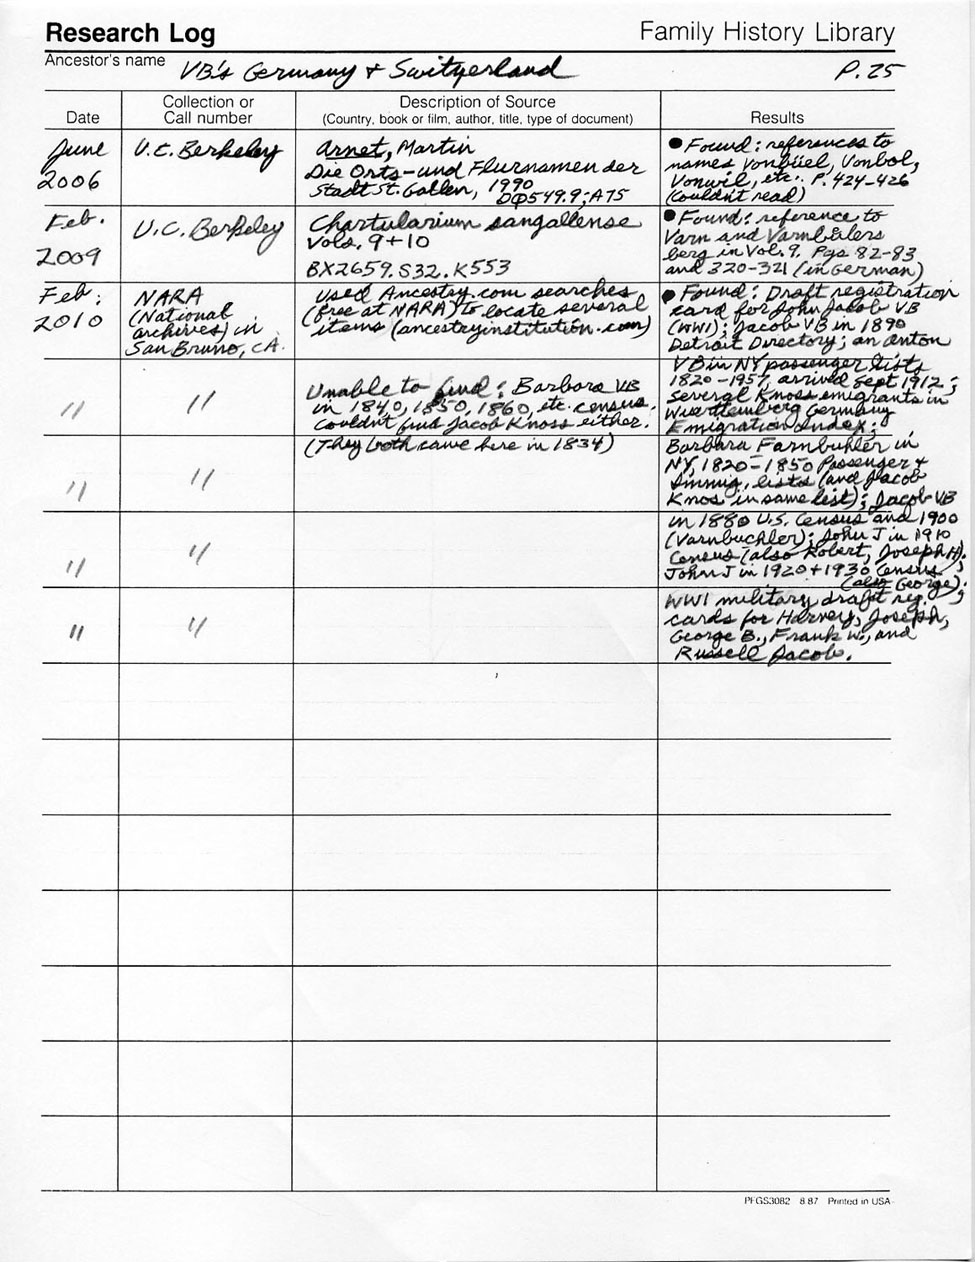 Research Log
Family History Library
Ancestor's name VB's Germany + Switzerland P. 25
Date
Collection or
Call number
Description of Source
(Country, book or film, author, title, type of document)
Results
June
2006
U.C. Berkeley
Arnet, Martin
Die Orts-und Flurnamen der
Stadt St. Gallen, 1990
DQ549.9;A75
● Found: references to
names Vonbüel, Vonbol,
Vonwil, etc. P. 424-426
(couldn't read)
Feb.
2009
U.C. Berkeley
Chartularium sangallense
Vols. 9+10
BX2659.S32.K553
● Found: reference to
Varn and Varnbülers
berg in Vol. 9. Pgs 82-83
and 320-321 (in German)
Feb.
2010
NARA
(National
archives) in
San Bruno, CA.
Used Ancestry.com searches
(free at NARA) to locate several
items (ancestryinstitution.com)
● Found: Draft registration
card for John Jacob VB
(WWI); Jacob VB in 1890
Detroit Directory; an Anton
" "
Unable to find: Barbara VB
in 1840, 1850, 1860, etc. census.
Couldn't find Jacob Knoss either.
VB in NY passenger lists
1820-1957, arrived Sept 1912;
several Knoss emigrants in
Wuerttemberg Germany
Emigration Index;
" "
(They both came here in 1834)
Barbara Farnbuhler in
NY, 1820-1850 Passenger +
Immig. lists (and Jacob
Knos in same list); Jacob VB
" "
in 1880 U.S. Census and 1900
(Varnbuchler); John J in 1910
Census (also Robert, Joseph H);
John J in 1920+1930 Census
(also George).
" "
WWI military draft reg.
cards for Harvey, Joseph,
George B., Frank W., and
Russell Jacob.
PFGS3082 8/87 Printed in USA